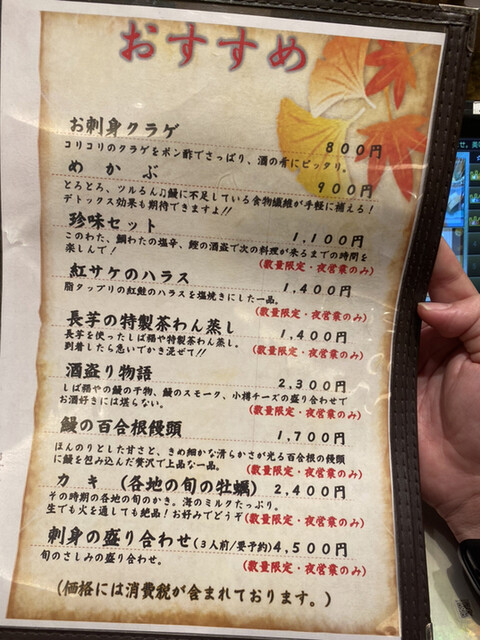 おすすめ
お刺身クラゲ 800円
コリコリのクラゲをポン酢でさっぱり、酒の肴にピッタリ。
めかぶ 900円
とろとろ、ツルるん♫鰻に不足している食物繊維が手軽に補える！
デトックス効果も期待できますよ!!
珍味セット 1,100円
このわた、鯛わたの塩辛、鰹の酒盗で次の料理が来るまでの時間を
楽しんで！ (数量限定・夜営業のみ)
紅サケのハラス 1,400円
脂タップリの紅鮭のハラスを塩焼きにした一品。
(数量限定・夜営業のみ)
長芋の特製茶わん蒸し 1,400円
長芋を使ったしば福や特製茶わん蒸し。
到着したら急いでかき混ぜて!! (数量限定・夜営業のみ)
酒盗り物語 2,300円
しば福やの鰻の干物、鰻のスモーク、小樽チーズの盛り合わせで
お酒好きには堪らない。 (数量限定・夜営業のみ)
鰻の百合根饅頭 1,700円
ほんのりとした甘さと、きめ細かな滑らかさが光る百合根の饅頭
に鰻を包み込んだ贅沢で上品な一品。 (数量限定・夜営業のみ)
カキ (各地の旬の牡蠣) 2,400円
その時期の各地の旬のかき。海のミルクたっぷり。
生でも火を通しても絶品！お好みでどうぞ (数量限定・夜営業のみ)
刺身の盛り合わせ(3人前/要予約) 4,500円
旬のさしみの盛り合わせ。 (数量限定・夜営業のみ)
(価格には消費税が含まれております。)